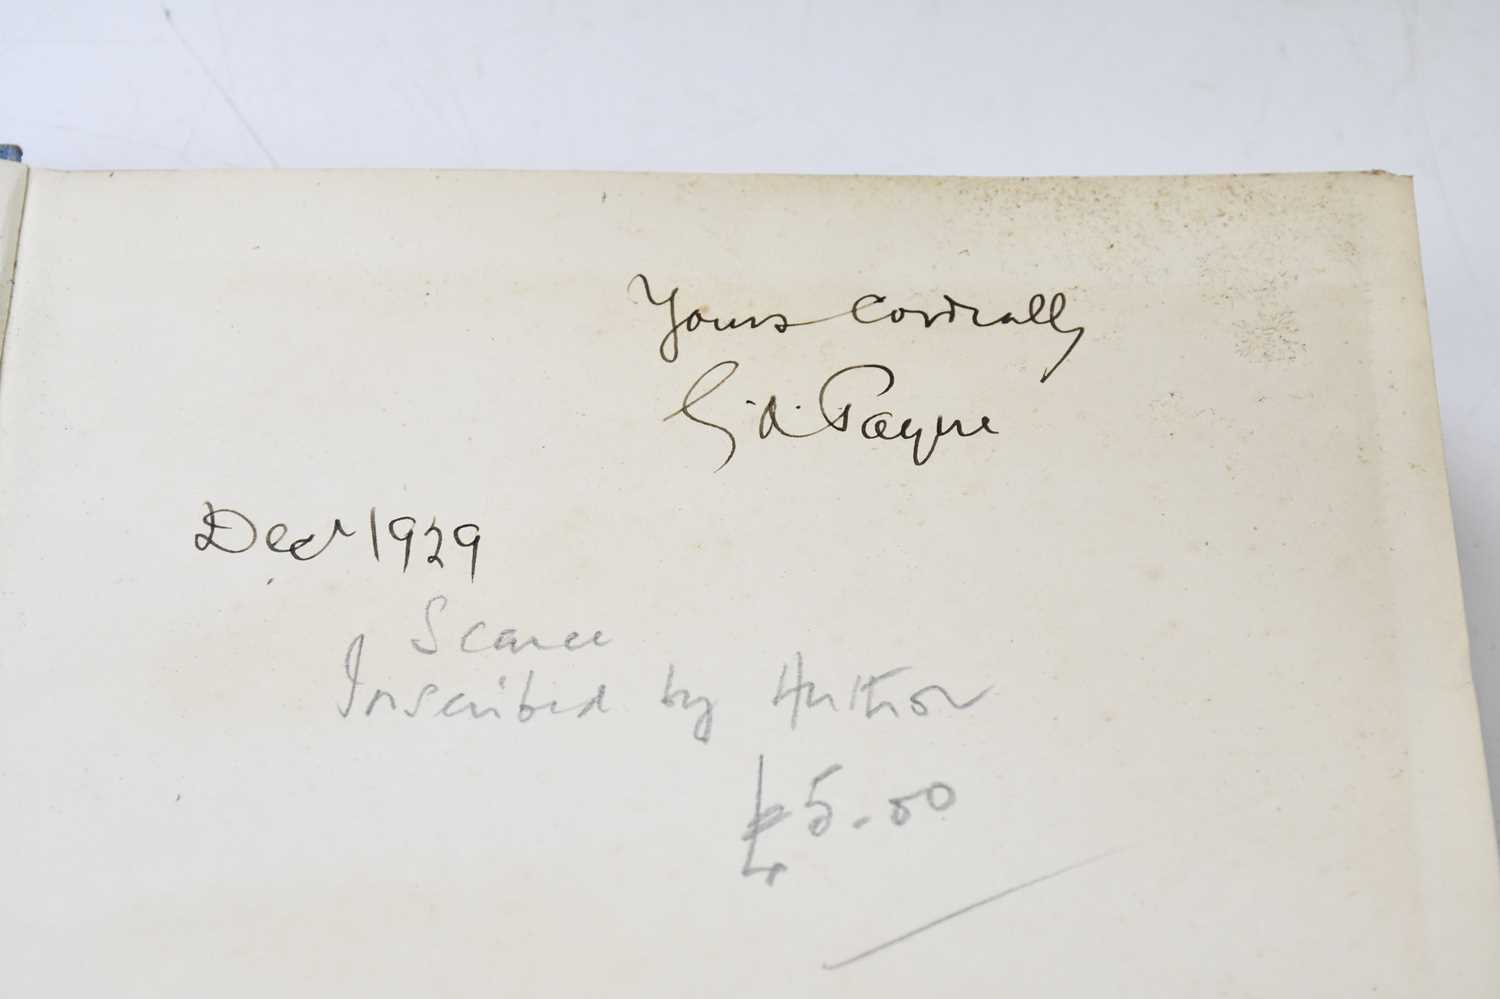 Yours Cordially
G. A. Payne
Decr 1929
Scarce
Inscribed by Author
£5.00